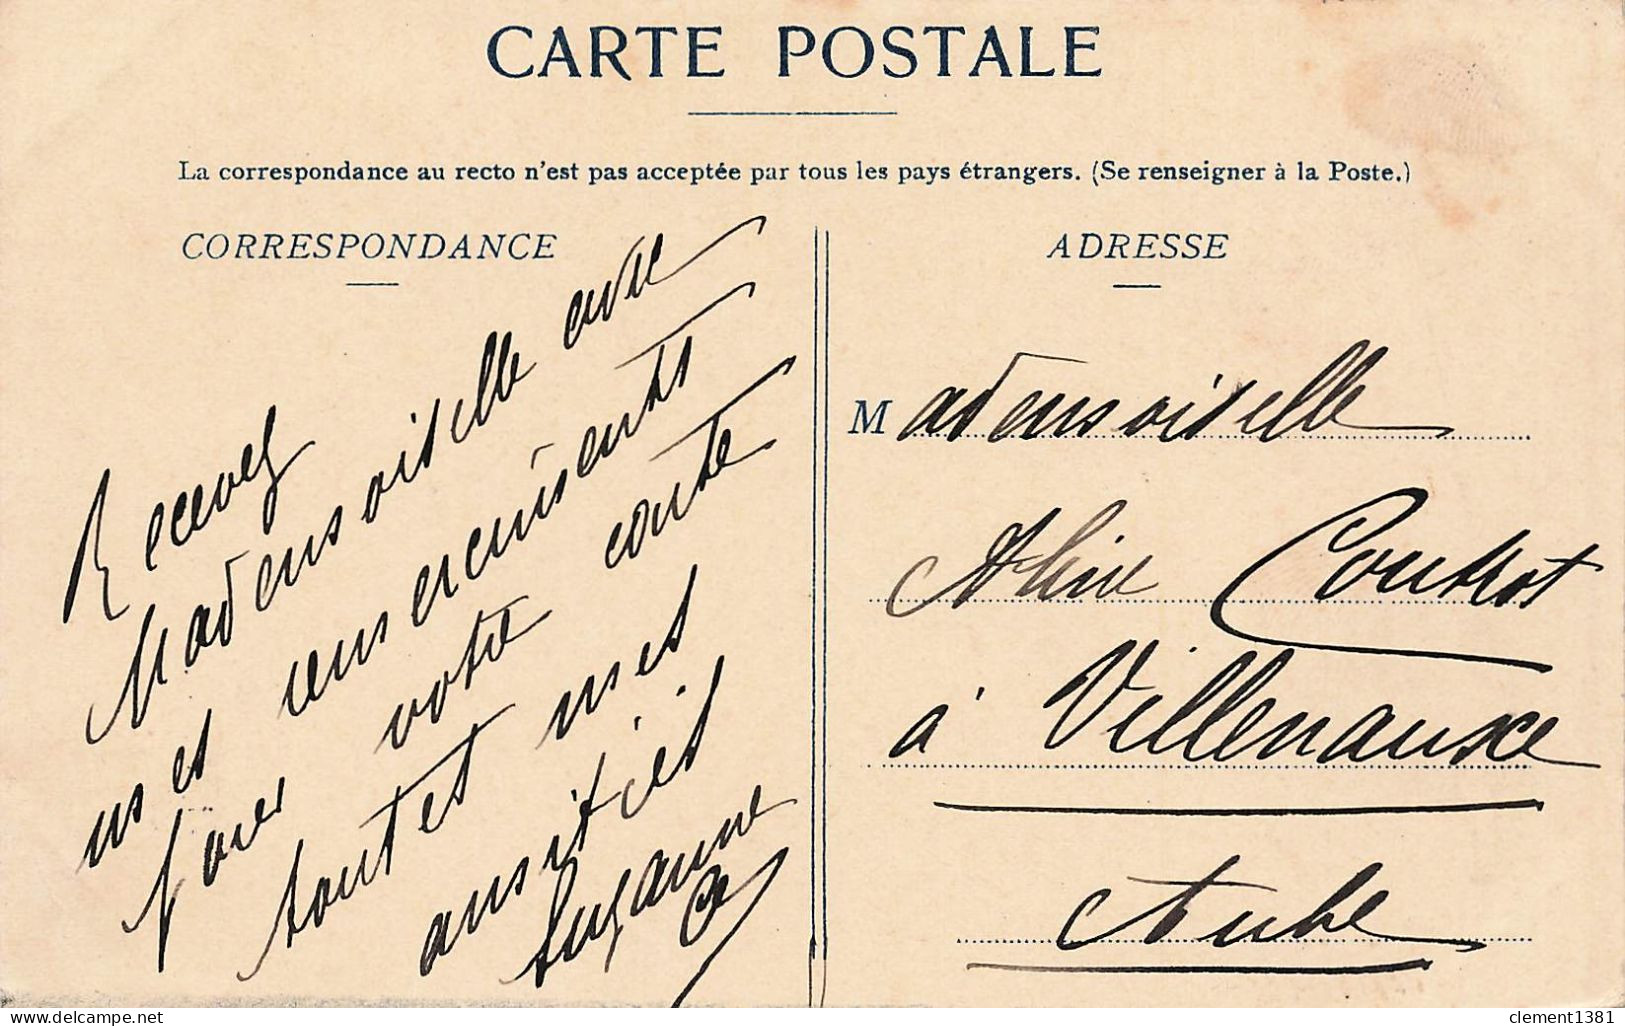 CARTE POSTALE
La correspondance au recto n'est pas acceptée par tous les pays étrangers. (Se renseigner à la Poste.)
CORRESPONDANCE
Recevez
Mademoiselle avec
mes remerciments
pour votre carte
toutes mes
amitiés
Suzanne
ADRESSE
Mademoiselle
Aline Coutrot
à Villenauxe
Aube
clement1381